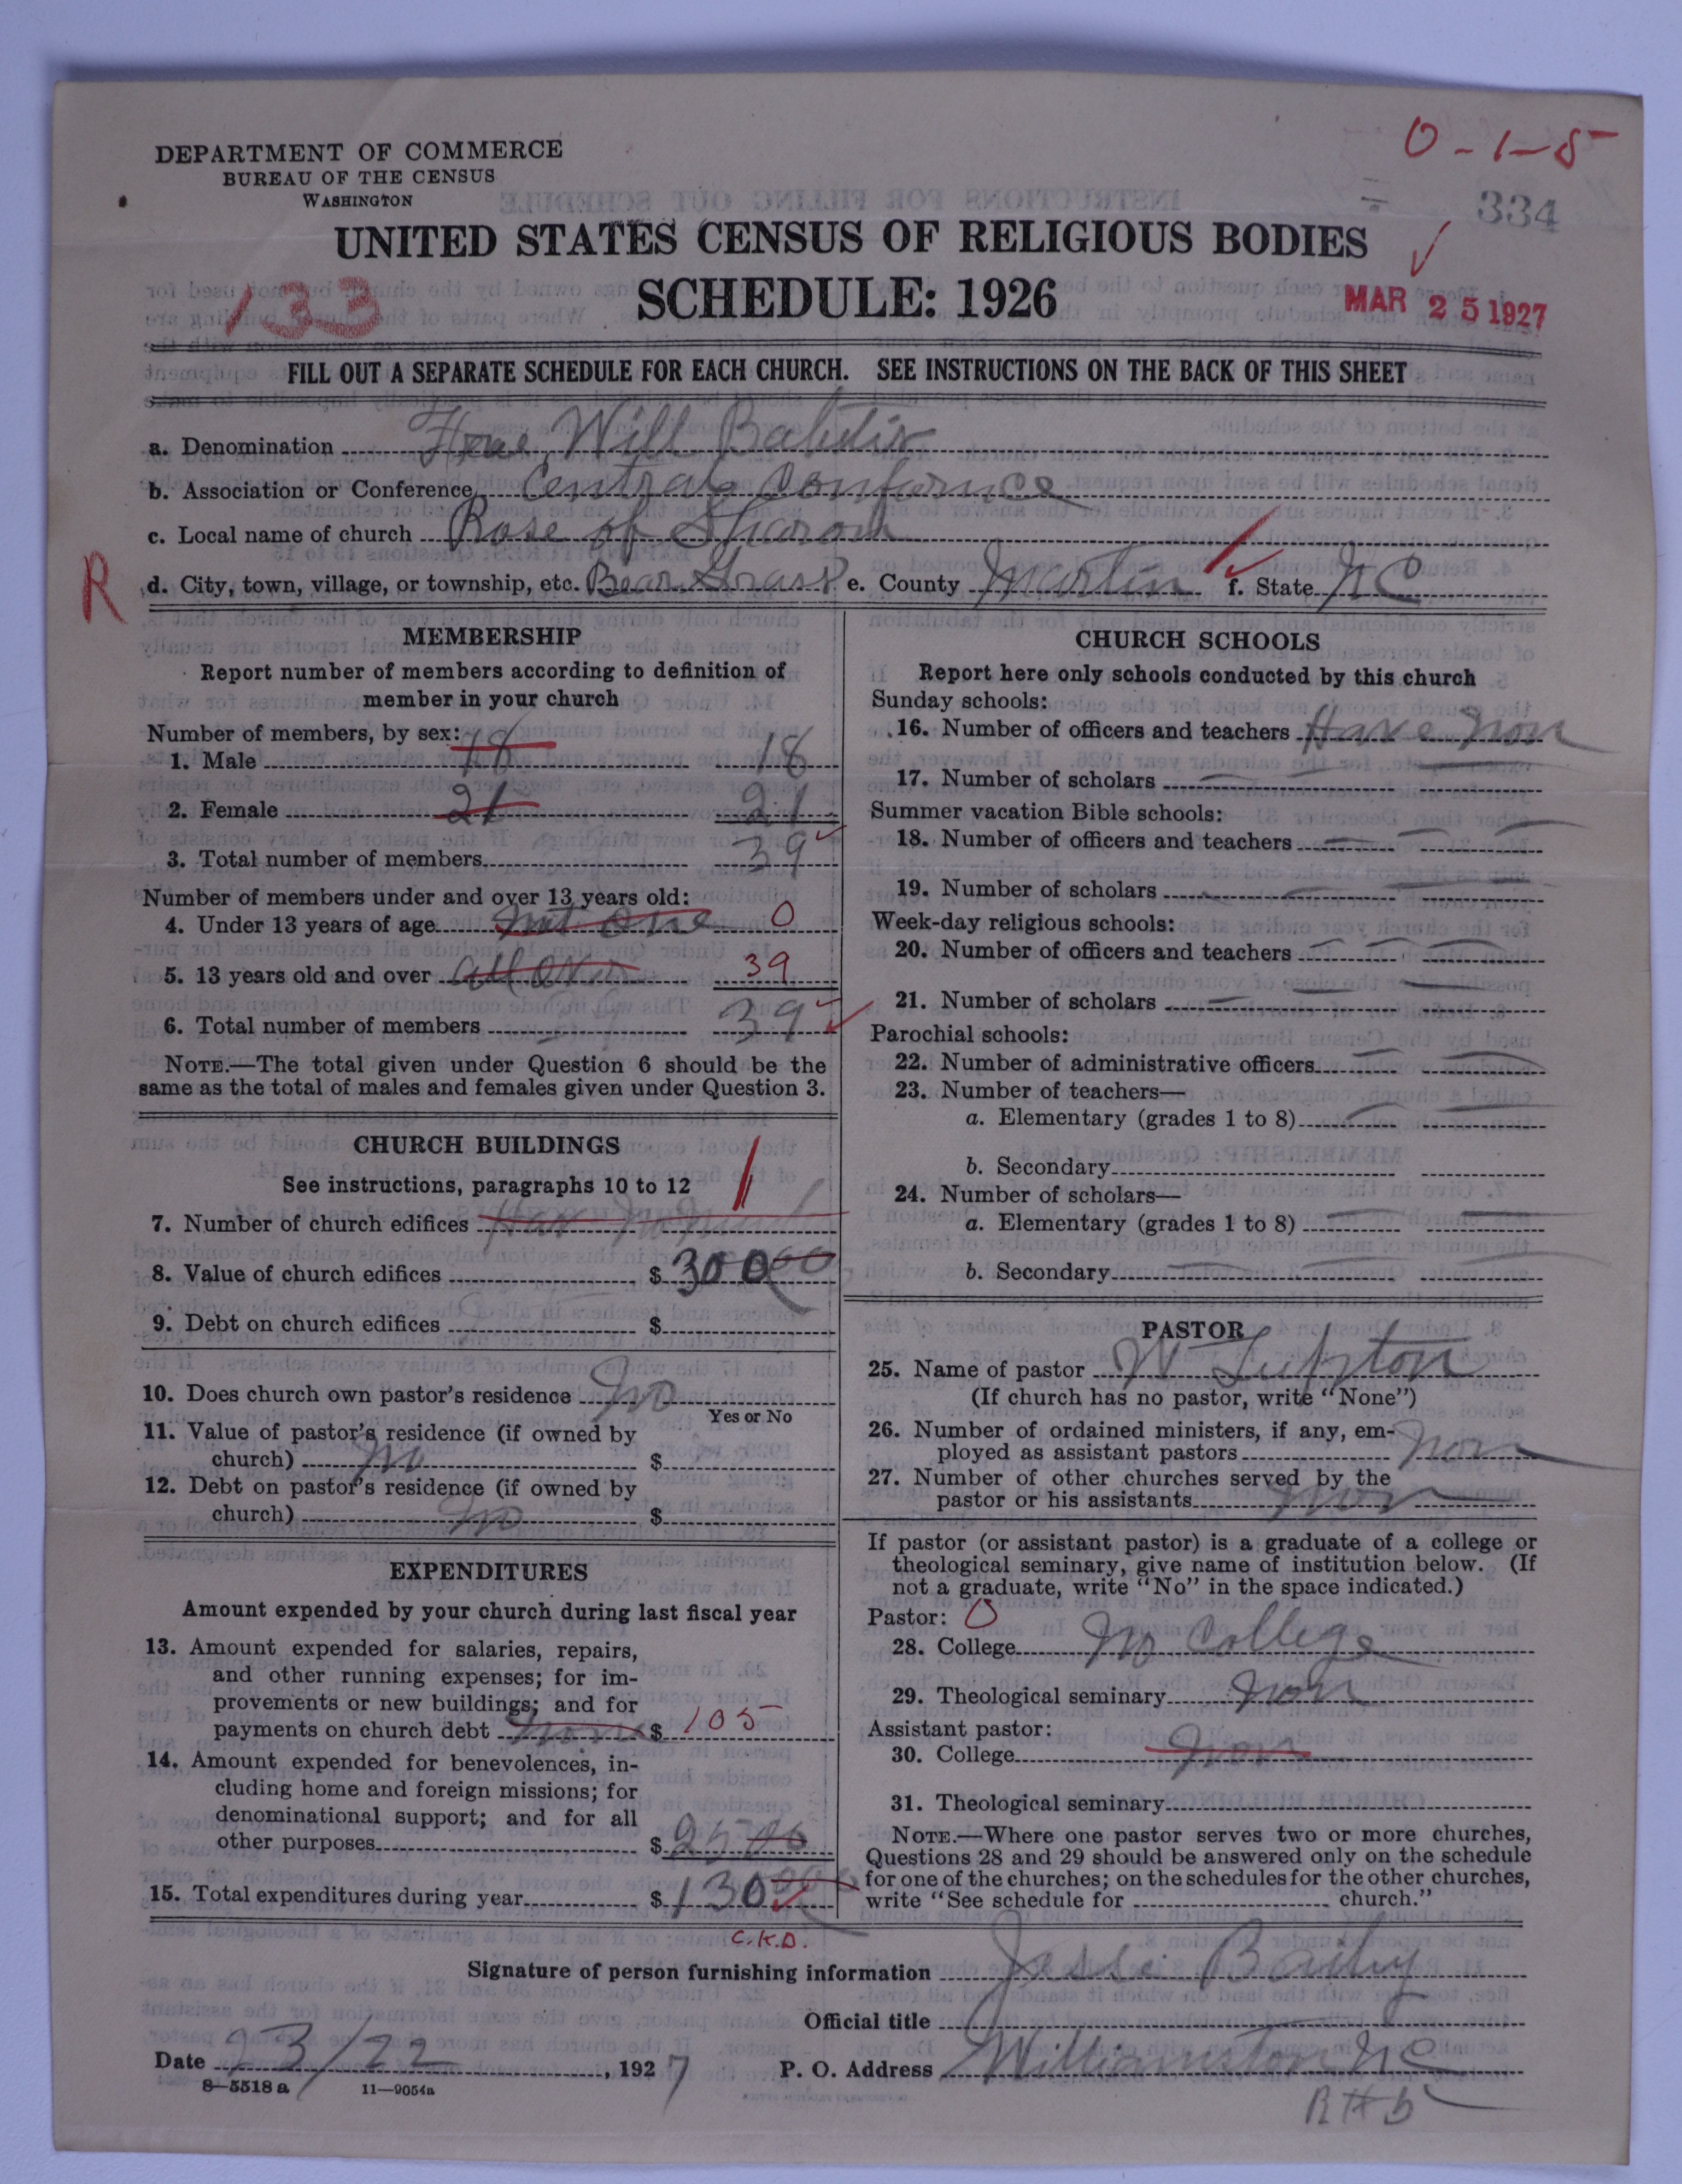 0-1-5
DEPARTMENT OF COMMERCE
BUREAU OF THE CENSUS
WASHINGTON
334
UNITED STATES CENSUS OF RELIGIOUS BODIES
133
SCHEDULE: 1926
MAR 25 1927
FILL OUT A SEPARATE SCHEDULE FOR EACH CHURCH. SEE INSTRUCTIONS ON THE BACK OF THIS SHEET
a. Denomination Free Will Babtix
b. Association or Conference Central Confurnce
c. Local name of church Rose of Sharon
R
d. City, town, village, or township, etc. Bear Grass e. County Martin f. State NC
MEMBERSHIP
Report number of members according to definition of
member in your church
Number of members, by sex:
1. Male 18 18
2. Female 21 21
3. Total number of members 39
Number of members under and over 13 years old:
4. Under 13 years of age not one 0
5. 13 years old and over all over 39
6. Total number of members 39
NOTE.—The total given under Question 6 should be the
same as the total of males and females given under Question 3.
CHURCH BUILDINGS
See instructions, paragraphs 10 to 12
1
7. Number of church edifices
8. Value of church edifices $ 300 00
9. Debt on church edifices $
10. Does church own pastor's residence No
Yes or No
11. Value of pastor's residence (if owned by
church) No $
12. Debt on pastor's residence (if owned by
church) No $
EXPENDITURES
Amount expended by your church during last fiscal year
13. Amount expended for salaries, repairs,
and other running expenses; for im-
provements or new buildings; and for
payments on church debt None $ 105
14. Amount expended for benevolences, in-
cluding home and foreign missions; for
denominational support; and for all
other purposes $ 25 00
15. Total expenditures during year $ 130 00
C.K.D.
CHURCH SCHOOLS
Report here only schools conducted by this church
Sunday schools:
16. Number of officers and teachers Have Non
17. Number of scholars
Summer vacation Bible schools:
18. Number of officers and teachers
19. Number of scholars
Week-day religious schools:
20. Number of officers and teachers
21. Number of scholars
Parochial schools:
22. Number of administrative officers
23. Number of teachers—
a. Elementary (grades 1 to 8)
b. Secondary
24. Number of scholars—
a. Elementary (grades 1 to 8)
b. Secondary
PASTOR
25. Name of pastor W Lupton
(If church has no pastor, write "None")
26. Number of ordained ministers, if any, em-
ployed as assistant pastors Non
27. Number of other churches served by the
pastor or his assistants Non
If pastor (or assistant pastor) is a graduate of a college or
theological seminary, give name of institution below. (If
not a graduate, write "No" in the space indicated.)
Pastor: 0
28. College No College
29. Theological seminary Non
Assistant pastor:
30. College Non
31. Theological seminary
NOTE.—Where one pastor serves two or more churches,
Questions 28 and 29 should be answered only on the schedule
for one of the churches; on the schedules for the other churches,
write "See schedule for church."
Signature of person furnishing information Jesse Baily
Official title
Date 23/22, 1927 P. O. Address Williamston NC
8—5518 a 11—9054a
R # 5